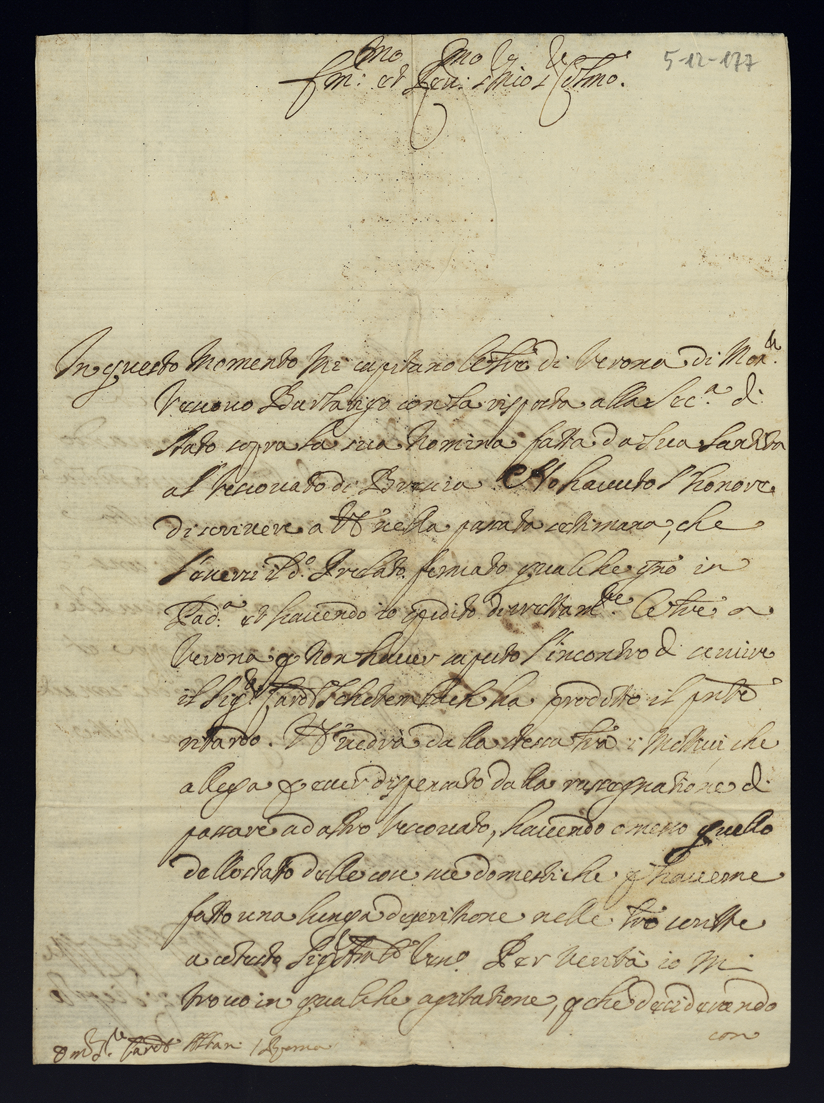 5-12-177
Em:mo et Rev:mo Sig.re
In questo momento mi capitano lettre di Verona di Mon.r
Vescovo Barbarigo con la risposta alla Sec.a di
stato sopra la sua nomina fatta da Sua Santità
al Vescovato di Brescia. Ho havuto l'honore
di scrivere a VE nella passata settimana, che
s'averrì il d.o Prelato fermato qualche gno in
Pad.a et havendo io spedito direttam.te lettre a
Verona p non haver saputo l'incontro di venire
il Sig.r Card.l ha prodotto il pnte
ritardo. VE vedrà dalla stessa lra i motivi, che
allega p esser dispensato dalla rassegnatione di
passare ad altro Vescovato, havendo omesso quello
dello stato delle cose sue domestiche p haverne
fatto una lunga descrittione nelle lre scritte
a cotesto Per verità io mi
trovo in qualche agitatione, p che desiderando
con
Card.l Roma